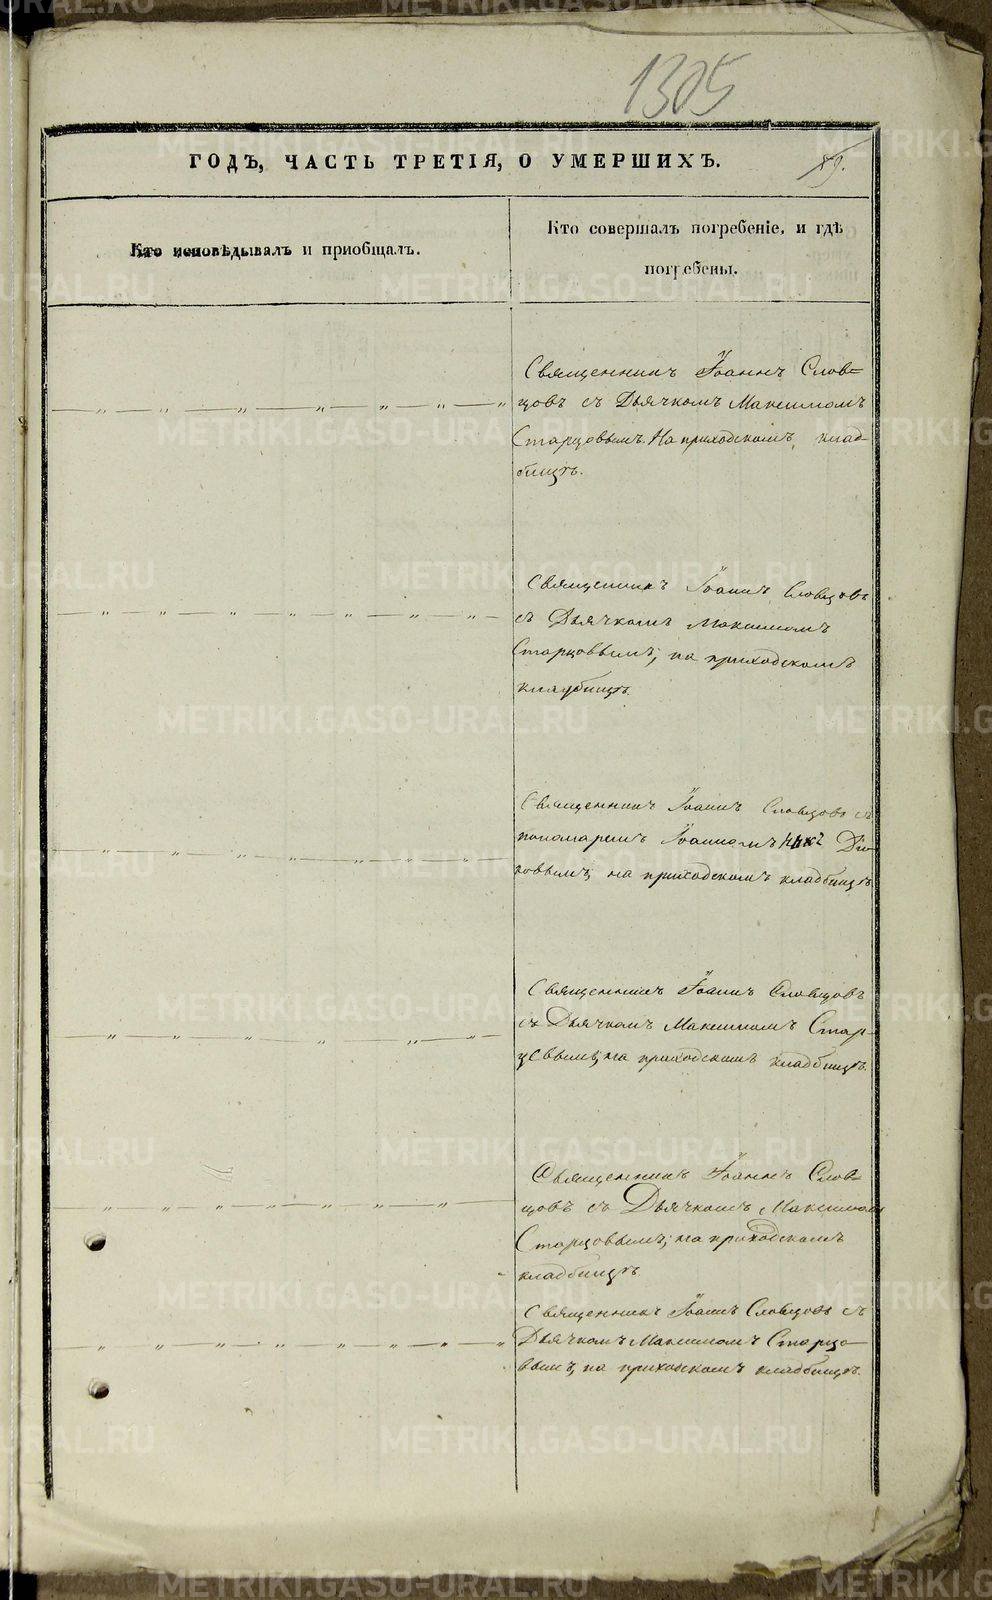 1305
ГОДЪ, ЧАСТЬ ТРЕТІЯ, О УМЕРШИХЪ.
Кто исповѣдывалъ и пріобщалъ.
Кто совершалъ погребеніе, и гдѣ
погребены.
Священникъ Іоаннъ Слов=
цовъ съ Дьячкомъ Максимомъ
Старцовымъ. На приходскомъ клад-
бищѣ.
Священникъ Іоаннъ Словцовъ
съ Дьячкомъ Максимомъ
Старцовымъ; на приходскомъ
кладбищѣ.
Священникъ Іоаннъ Словцовъ съ
пономаремъ Іоанномъ
ковымъ; на приходскомъ кладбищѣ
Священникъ Іоаннъ Словцовъ
съ Дьячкомъ Максимомъ Стар-
цовымъ; на приходскомъ кладбищѣ.
Священникъ Іоаннъ Слов=
цовъ съ Дьячкомъ Максимомъ
Старцовымъ; на приходскомъ
кладбищѣ
Священникъ Іоаннъ Словцовъ съ
Дьячкомъ Максимомъ Старцо-
вымъ, на приходскомъ кладбищѣ.
METRIKI.GASO-URAL.RU